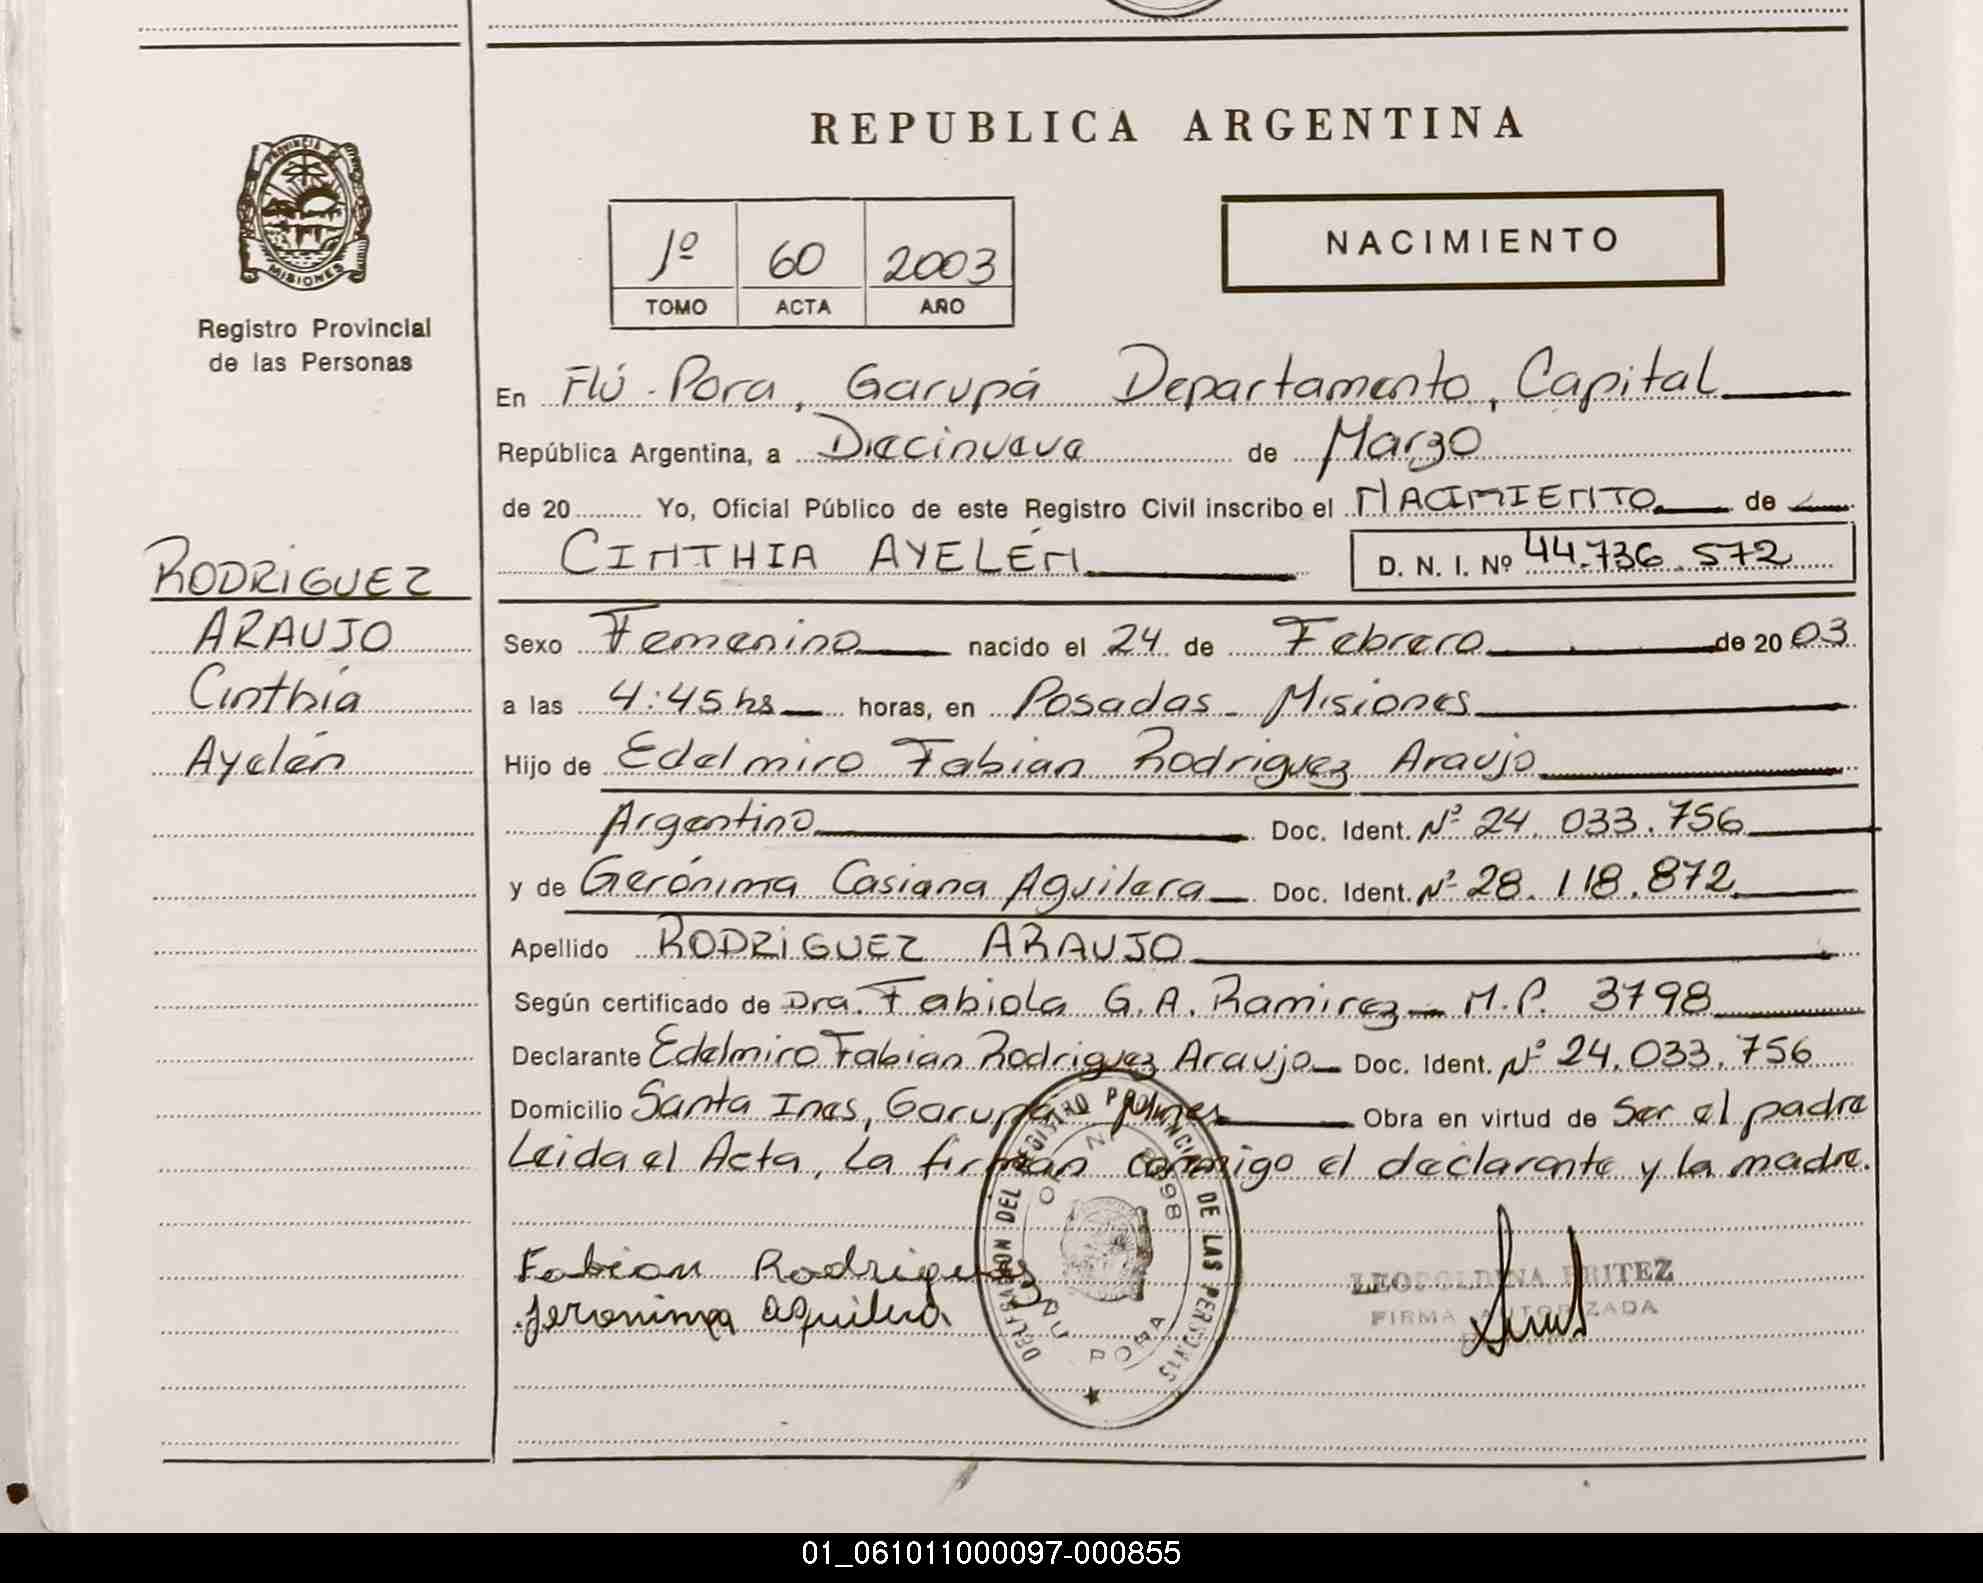 REPUBLICA ARGENTINA
PROVINCIA DE MISIONES
Registro Provincial
de las Personas
1º 60 2003
TOMO ACTA AÑO
NACIMIENTO
En Ñú-Pora, Garupá Departamento, Capital
República Argentina, a Diecinueve de Marzo
de 20 Yo, Oficial Público de este Registro Civil inscribo el NACIMIENTO de
CINTHIA AYELÉN D. N. I. Nº 44.736.572
RODRIGUEZ
ARAUJO
Cinthia
Ayelén
Sexo Femenino nacido el 24 de Febrero de 2003
a las 4:45 hs horas, en Posadas - Misiones
Hijo de Edelmiro Fabian Rodriguez Araujo
Argentino Doc. Ident. Nº 24.033.756
y de Gerónima Casiana Aguilera Doc. Ident. Nº 28.118.872
Apellido RODRIGUEZ ARAUJO
Según certificado de Dra. Fabiola G.A. Ramirez M.P. 3798
Declarante Edelmiro Fabian Rodriguez Araujo Doc. Ident. Nº 24.033.756
Domicilio Santa Ines, Garupa Mnes Obra en virtud de Ser el padre
Leida el Acta, La firman conmigo el declarante y la madre.
Fabian Rodriguez
Jeronima aguilera
DELEGACION DEL REGISTRO PROVINCIAL DE LAS PERSONAS
ÑU PORA
LEOPOLDINA BRITEZ
FIRMA AUTORIZADA
01_061011000097-000855